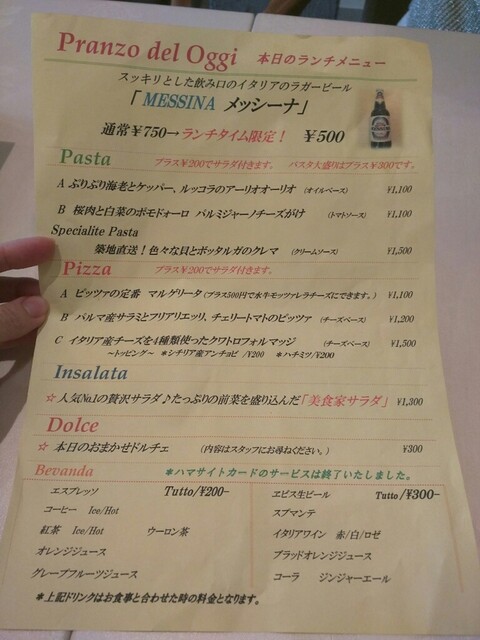 Pranzo del Oggi 本日のランチメニュー
スッキリとした飲み口のイタリアのラガービール
「MESSINA メッシーナ」
通常￥750→ランチタイム限定！ ￥500
Pasta プラス￥200でサラダ付きます。 パスタ大盛りはプラス￥300です。
A ぷりぷり海老とケッパー、ルッコラのアーリオオーリオ （オイルベース） ￥1,100
B 桜肉と白菜のポモドォーロ パルミジャーノチーズがけ （トマトソース） ￥1,100
Specialite Pasta
築地直送！色々な貝とボッタルガのクレマ （クリームソース） ￥1,500
Pizza プラス￥200でサラダ付きます。
A ピッツァの定番 マルゲリータ（プラス500円で水牛モッツァレラチーズにできます。） ￥1,100
B パルマ産サラミとフリアリエッリ、チェリートマトのピッツァ （チーズベース） ￥1,200
C イタリア産チーズを4種類使ったクワトロフォルマッジ （チーズベース） ￥1,500
～トッピング～ ＊シチリア産アンチョビ /￥200 ＊ハチミツ/￥200
Insalata
☆ 人気No.1の贅沢サラダ♪たっぷりの前菜を盛り込んだ「美食家サラダ」 ￥1,300
Dolce
☆ 本日のおまかせドルチェ （内容はスタッフにお尋ねください。） ￥300
Bevanda ＊ハマサイトカードのサービスは終了いたしました。
エスプレッソ Tutto/￥200-
コーヒー Ice/Hot
紅茶 Ice/Hot ウーロン茶
オレンジジュース
グレープフルーツジュース
ヱビス生ビール Tutto/￥300-
スプマンテ
イタリアワイン 赤/白/ロゼ
ブラッドオレンジジュース
コーラ ジンジャーエール
＊上記ドリンクはお食事と合わせた時の料金となります。